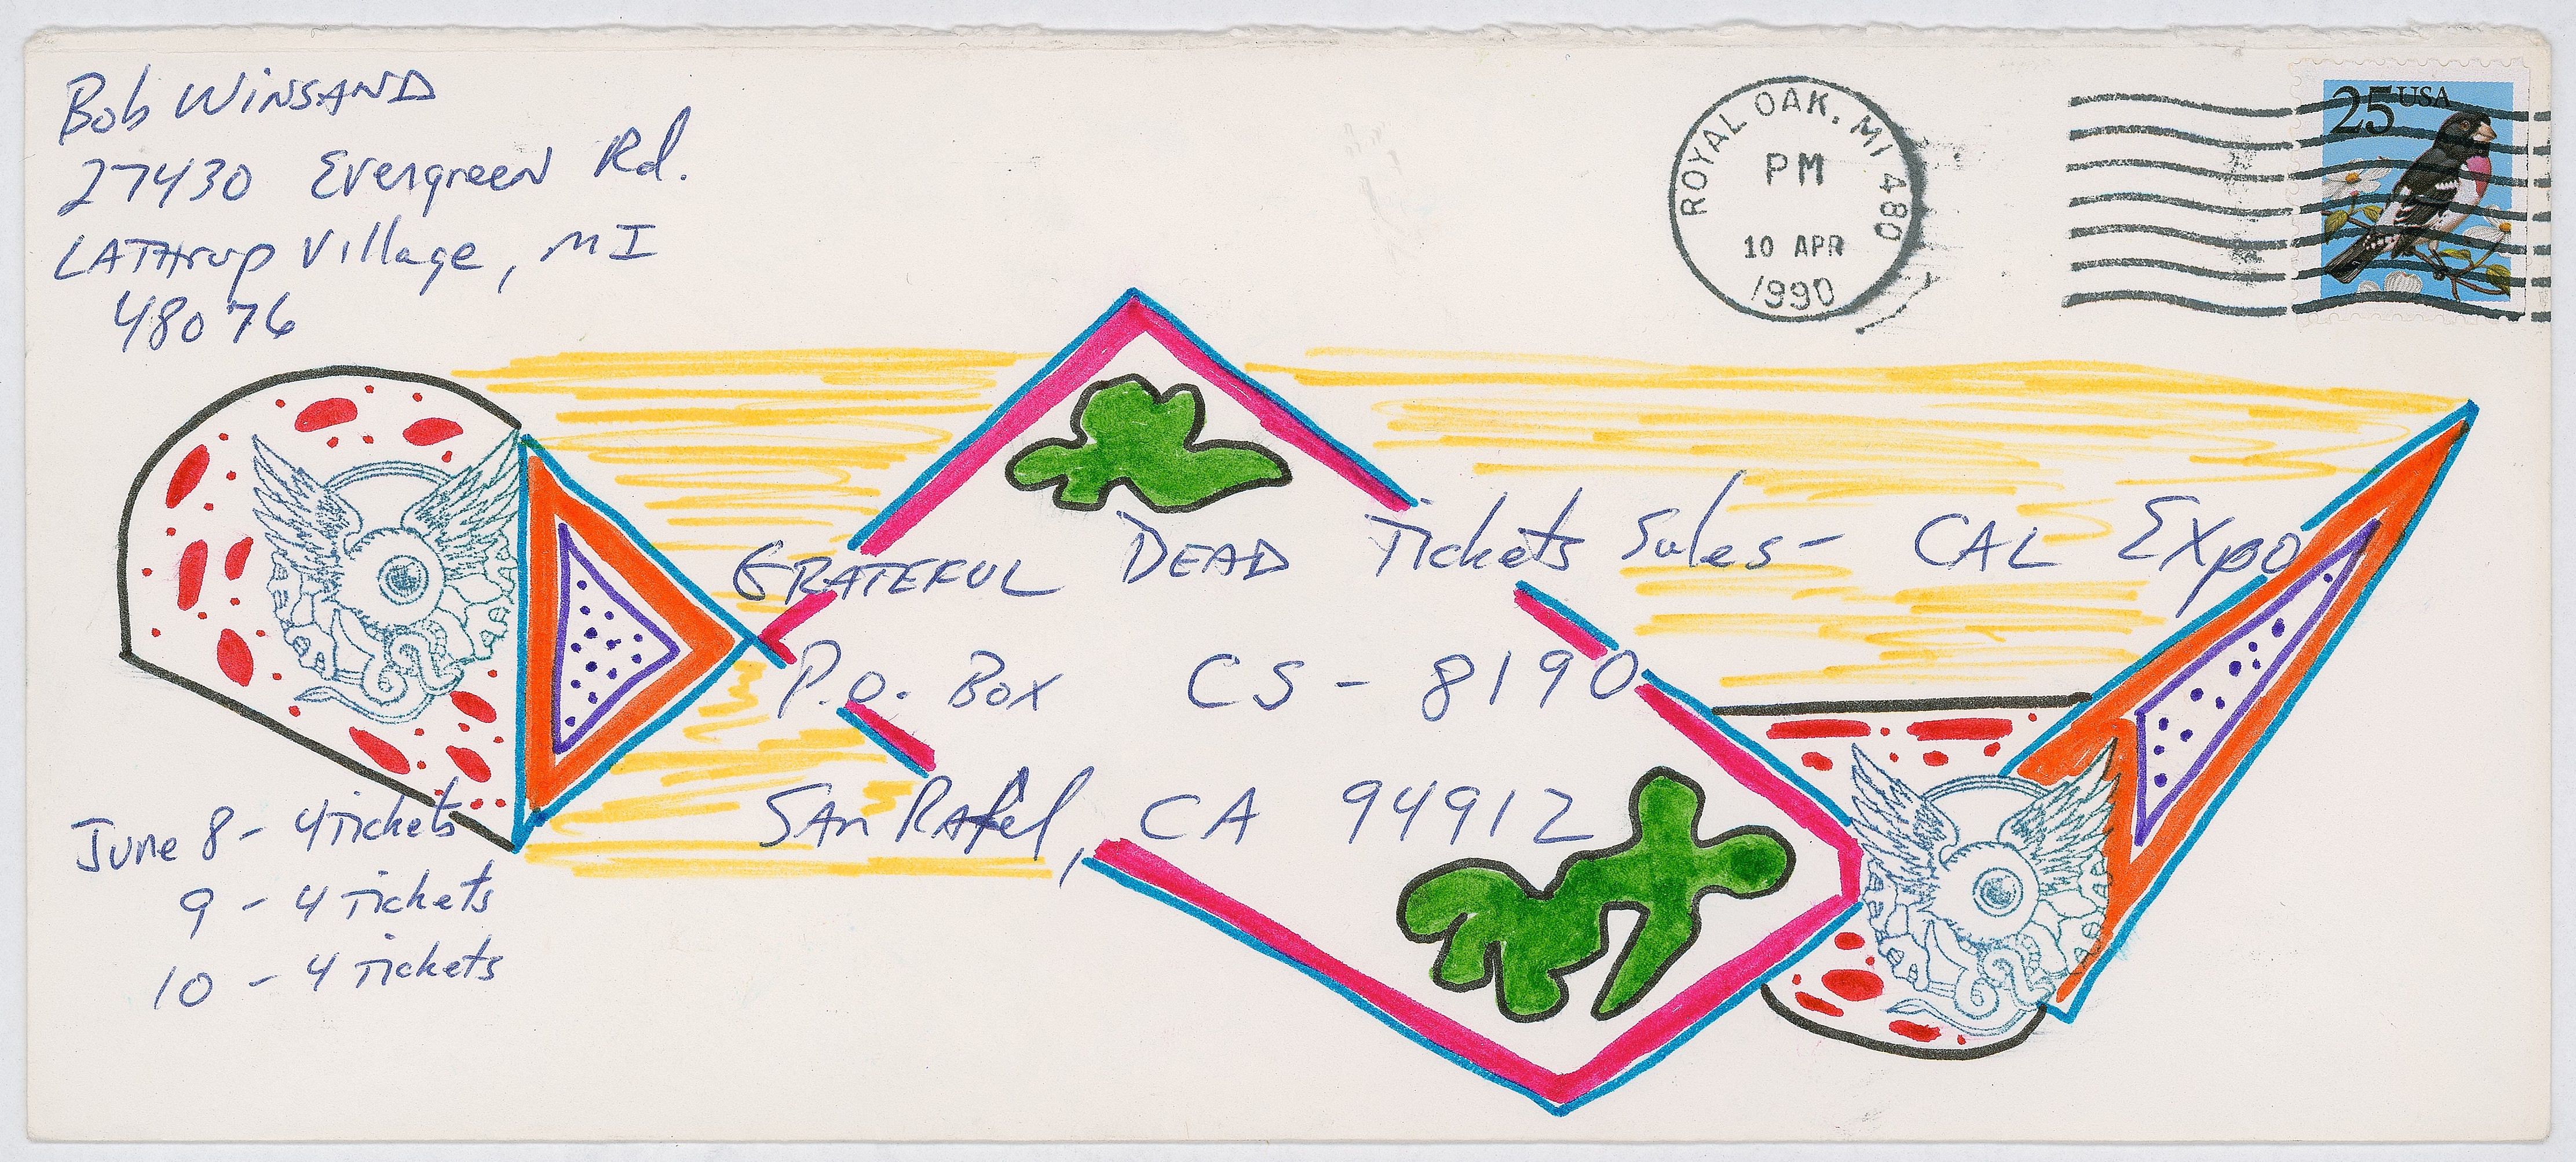 Bob Winsand
27430 Evergreen Rd.
Lathrup Village, MI
48076
ROYAL OAK, MI 480
PM
10 APR
1990
25 USA
Grateful Dead Tickets Sales - Cal Expo
P.O. Box CS - 8190
San Rafel, CA 94912
June 8 - 4 Tickets
9 - 4 Tickets
10 - 4 Tickets